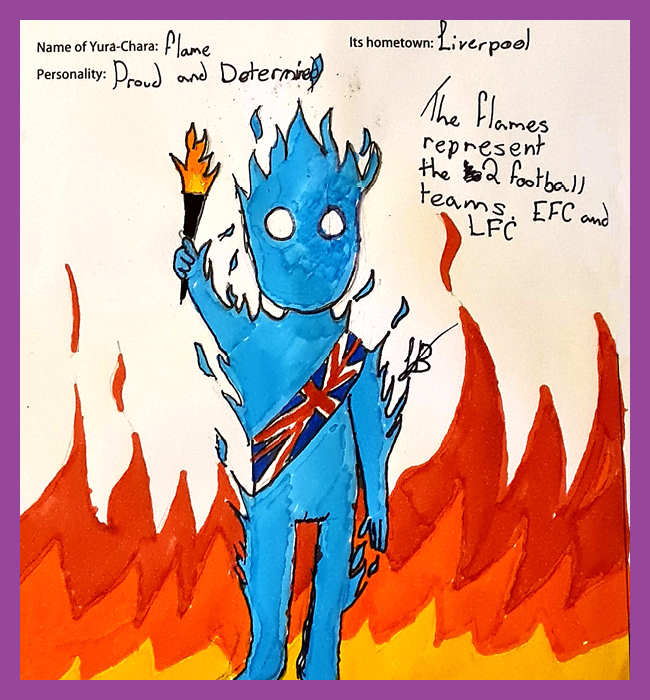 Name of Yura-Chara: flame
Its hometown: Liverpool
Personality: Proud and Determined
The flames
represent
the 2 football
teams. EFC and
LFC
LB